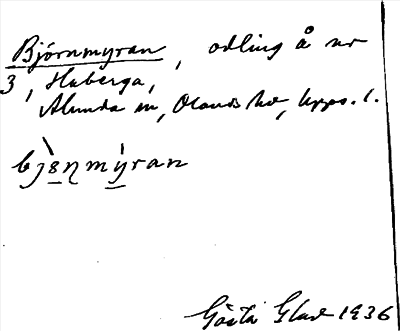 Björnmyran, odling å nr
3, Huberga,
Alunda sn, Olands hd, Upps. l.
bjɜɳmyran
Gösta Glad 1936